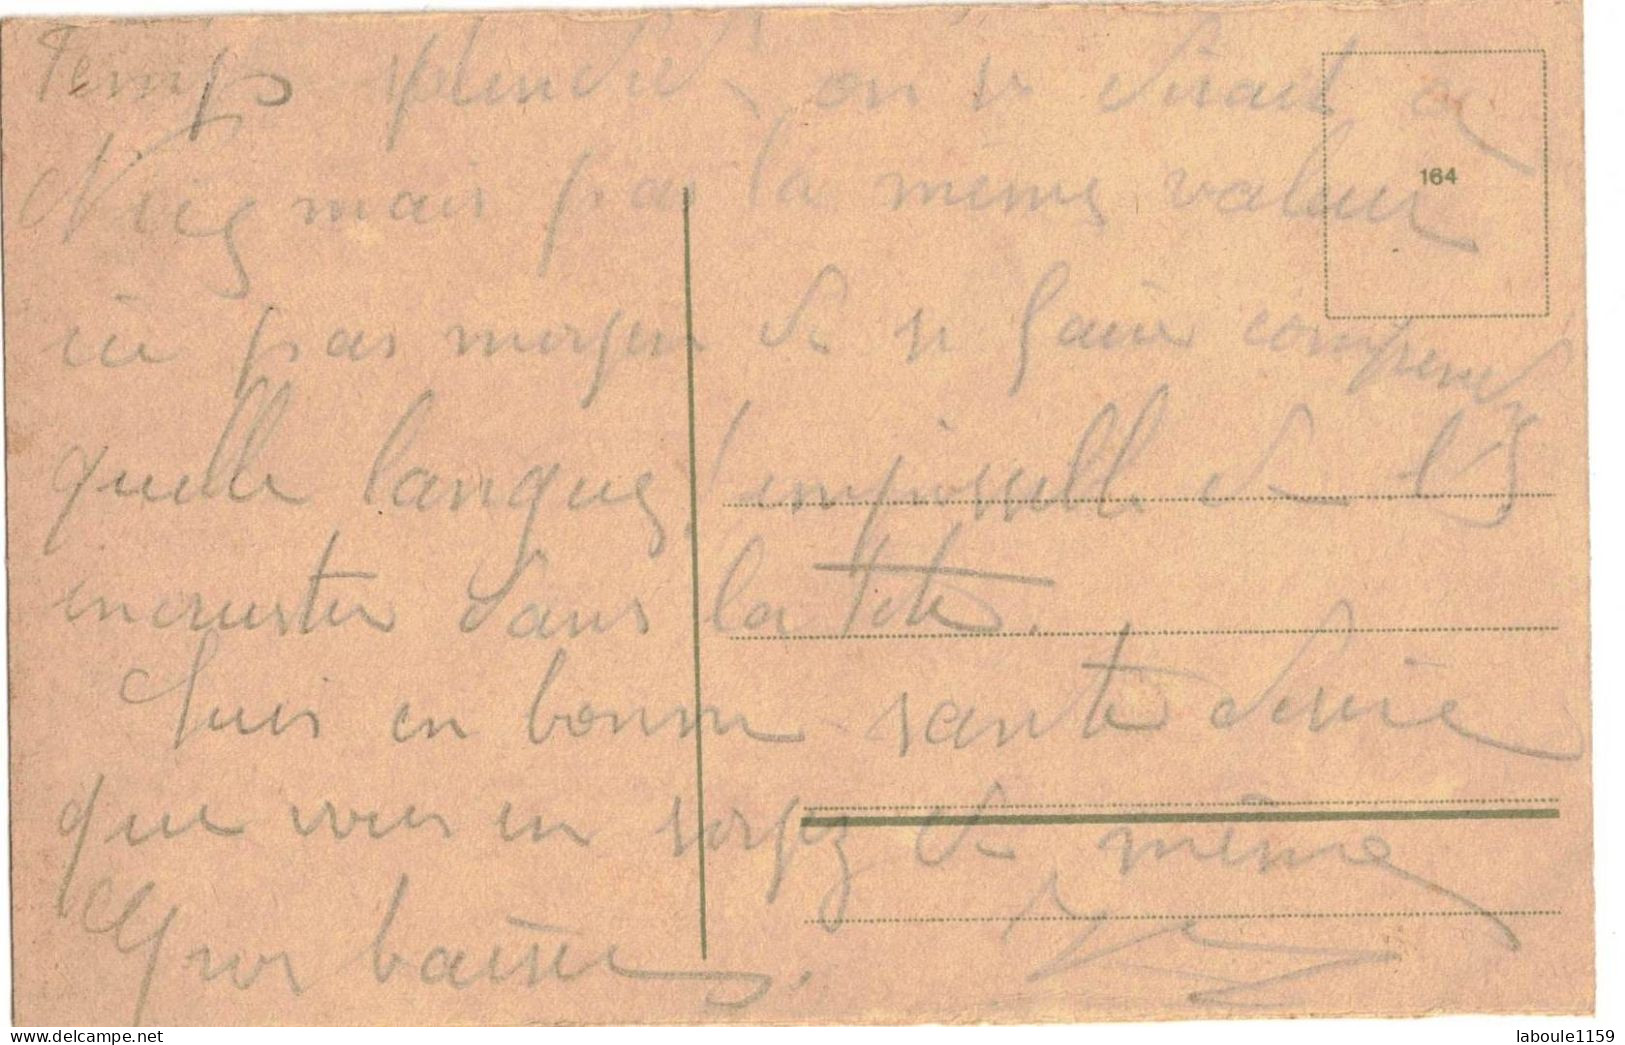 Temps splendide on se dirait à
Nice mais pas la même valeur
ici pas moyen de se faire comprendre
quelle langue, impossible de l's
encruster dans la tête.
Suis en bonne santé désire
que vous en soyez de même
Gros baisers.
164
delcampe.net
laboule1159